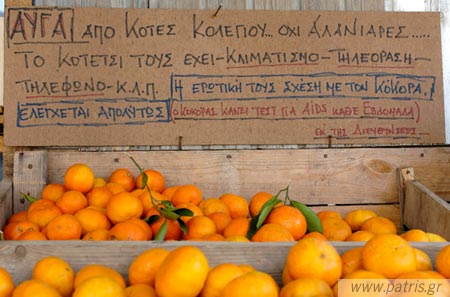 © www.patris.gr
ΑΥΓΑ ΑΠΟ ΚΟΤΕΣ ΚΟΛΕΓΙΟΥ... ΟΧΙ ΑΛΑΝΙΑΡΕΣ.....
ΤΟ ΚΟΤΕΤΣΙ ΤΟΥΣ ΕΧΕΙ-ΚΛΙΜΑΤΙΣΜΟ-ΤΗΛΕΟΡΑΣΗ-
ΤΗΛΕΦΩΝΟ-Κ.Λ.Π. Η ΕΡΩΤΙΚΗ ΤΟΥΣ ΣΧΕΣΗ ΜΕ ΤΟΝ ΚΟΚΟΡΑ.
ΕΛΕΓΧΕΤΑΙ ΑΠΟΛΥΤΟΣ (Ο ΚΟΚΟΡΑΣ ΚΑΝΕΙ ΤΕΣΤ ΓΙΑ AIDS ΚΑΘΕ ΕΒΔΟΜΑΔΑ)
ΕΚ ΤΗΣ ΔΙΕΥΘΗΝΣΕΩΣ...
www.patris.gr